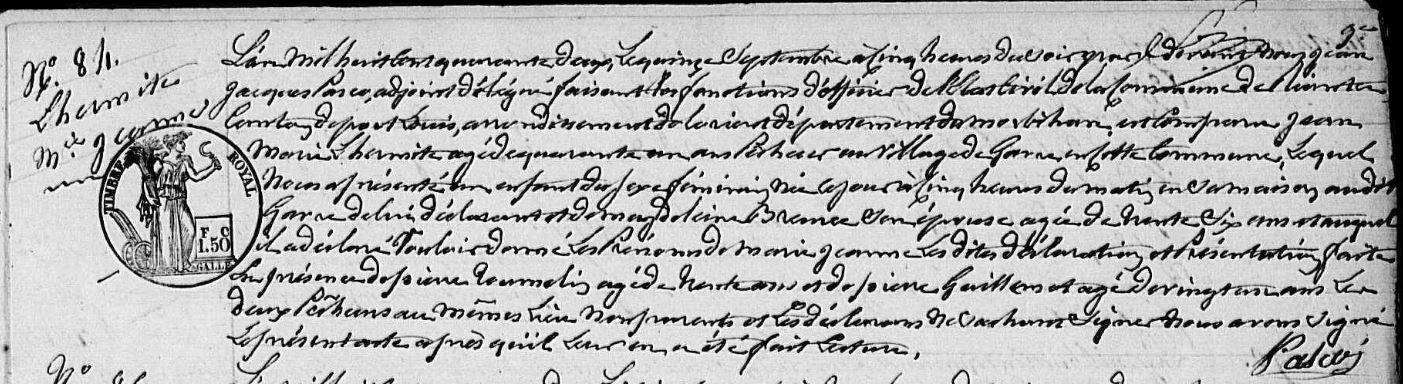 N.° 84.
Lhermite
M.ie Jeanne
TIMBRE ROYAL
F. C
1.50
GALLE
L'an Mil huit Cent quarante deux, Le quinze Septembre a Cinq heures du soir devant Nous Jean
Jacques Pasco, adjoint délégué faisant les fonctions d'officier de l'Etat Civil de la Commune de
Canton de port Louis, arrondissement de lorient département du morbihan, est Comparu Jean
Marie Lhermite agé de quarante un ans Pêcheur au Village de Gavre en Cette Commune, Lequel
Nous a présenté un enfant du sexe féminin Née Ce jour à Cinq heures du matin en Sa maison audit
Gavre de lui déclarant et de magdeleine Son épouse agée de trente Six ans et auquel
il a déclaré Vouloir donné Les Prénoms de Marie Jeanne Les dites déclaration et Présentation faite
En présence de pierre Tournelin agé de trente ans et de pierre Guillemot agé de vingt ans Les
deux Pêcheurs au Mêmes Lieu Non parents et Les déclarans Ne Sachant Signer Nous avons Signé
Le présent acte après qu'il Leur en a été fait Lecture.
Pasco
N.°